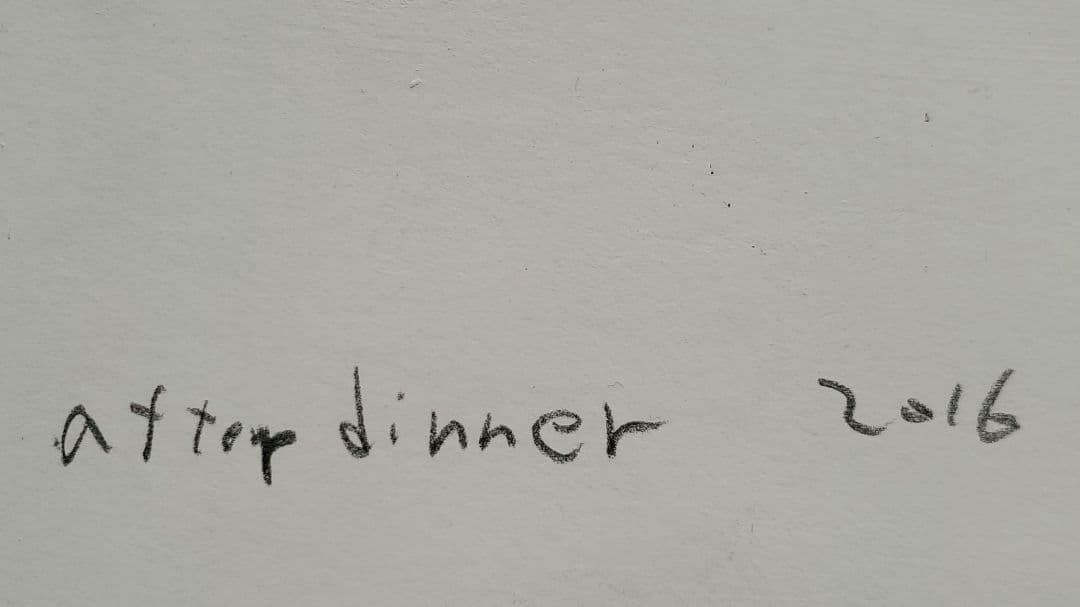 after dinner 2016